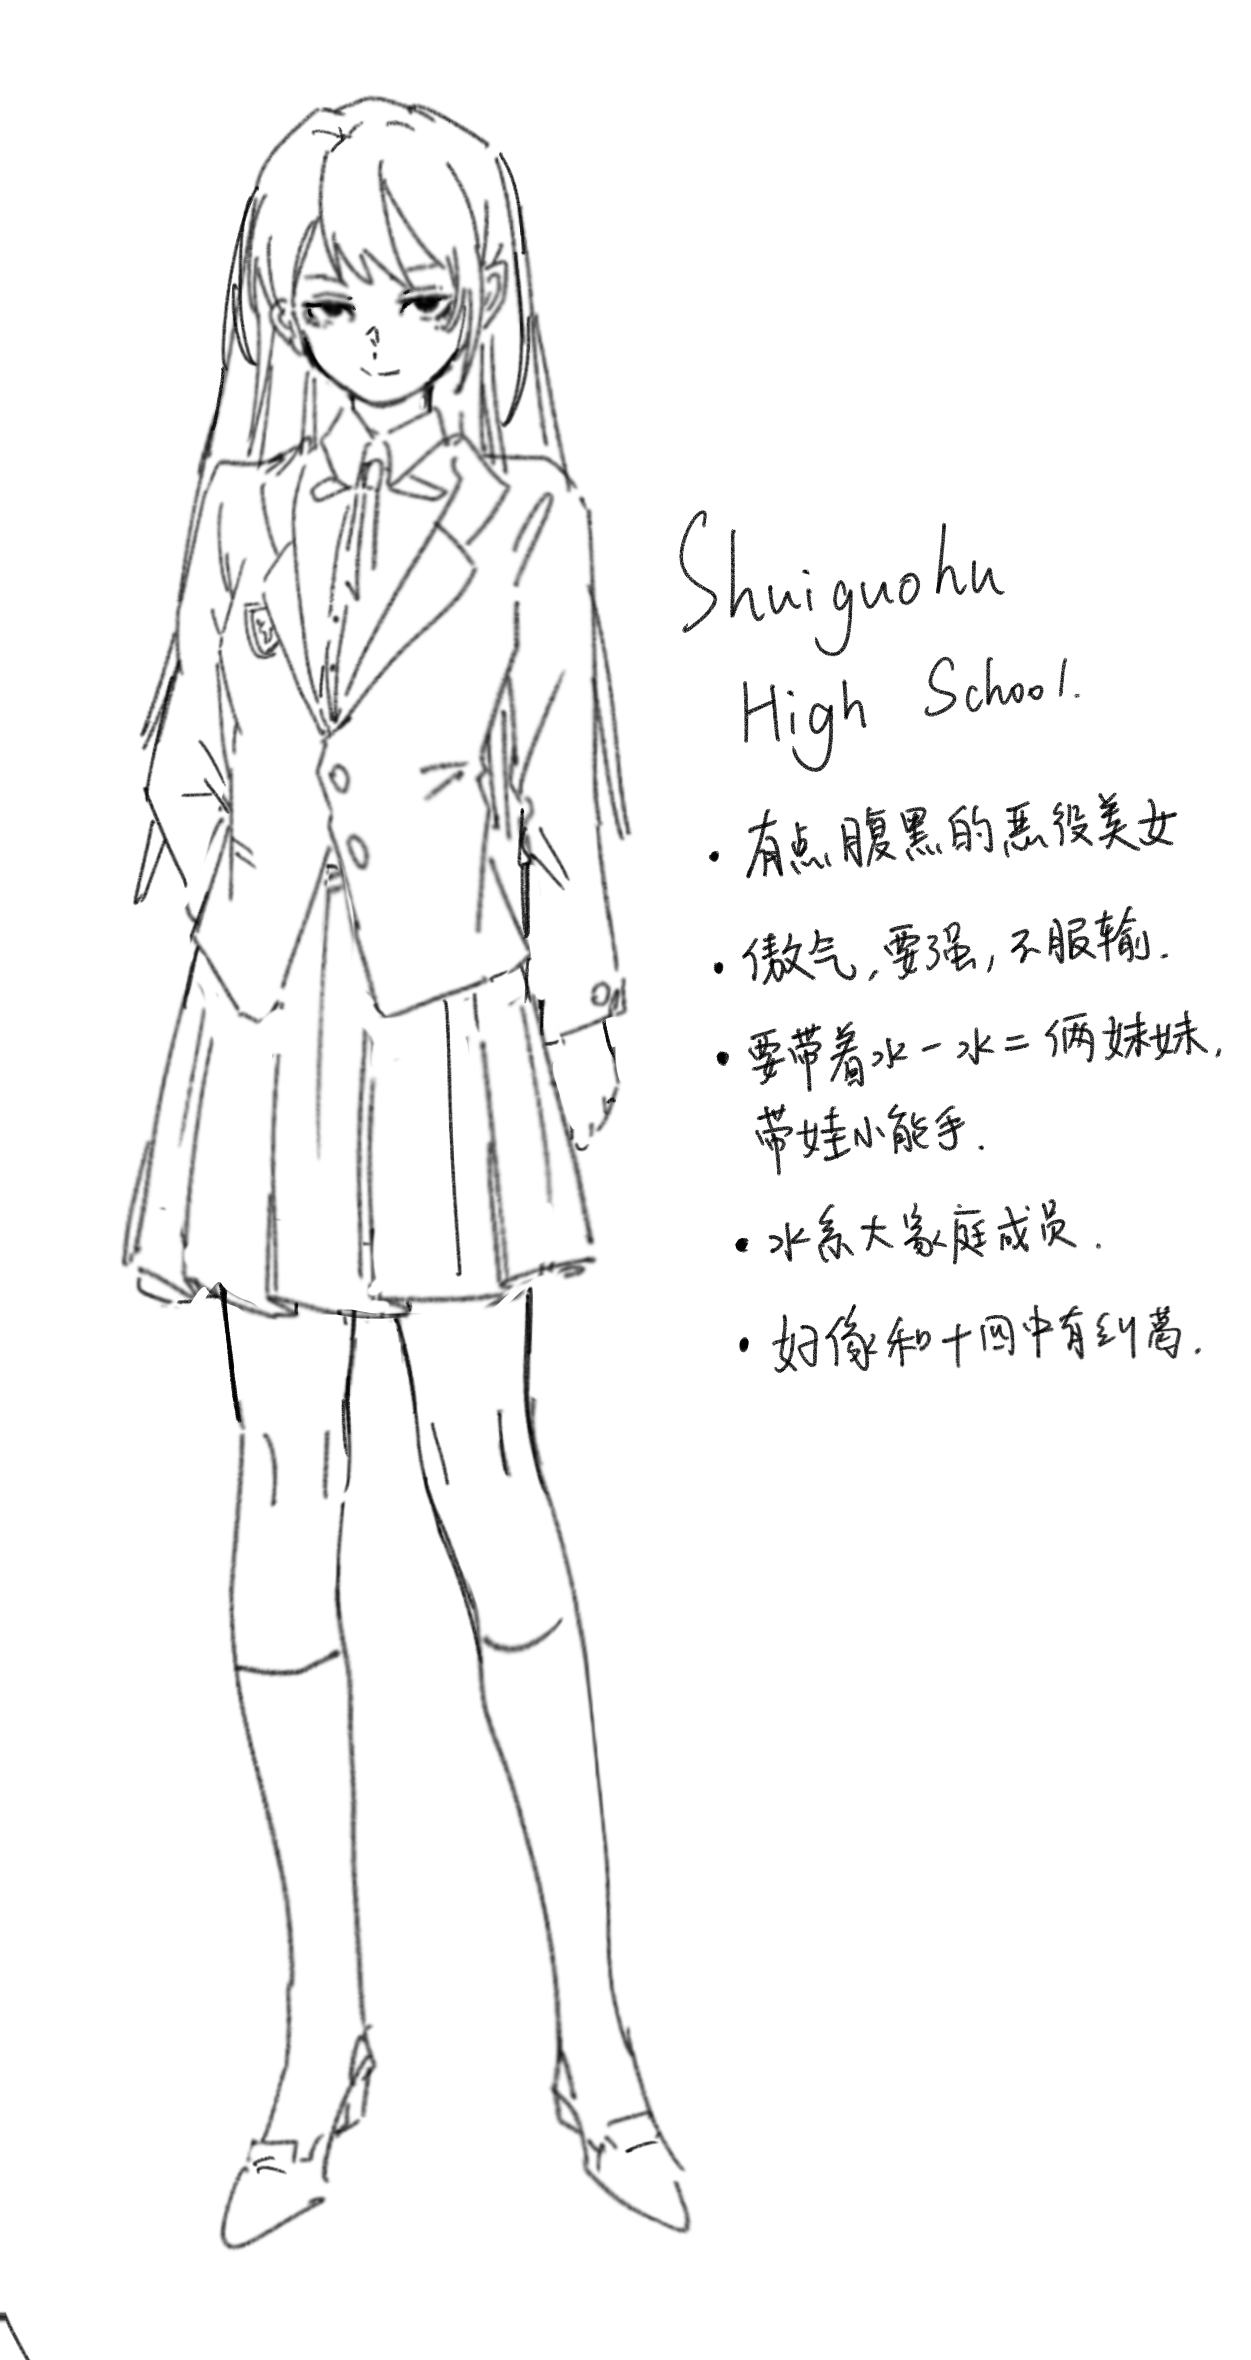 Shuiguohu
High School.
· 有点腹黑的恶役美女
· 傲气,要强,不服输.
· 要带着水一水二俩妹妹,
带娃小能手.
· 水系大家庭成员.
· 好像和十四中有纠葛.